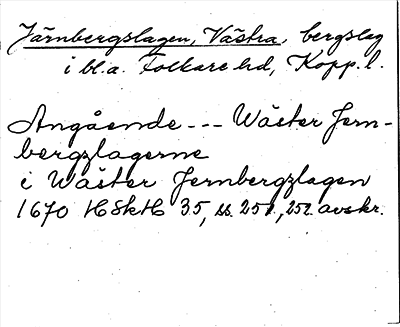 Järnbergslagen, Västra, bergslag
i bl.a. Folkare hd, Kopp. l.
Angående --- Wäster Jern-
bergzlagerne
i Wäster Jernbergzlagen
1670 HSkH 35, ss. 251, 252 avskr.